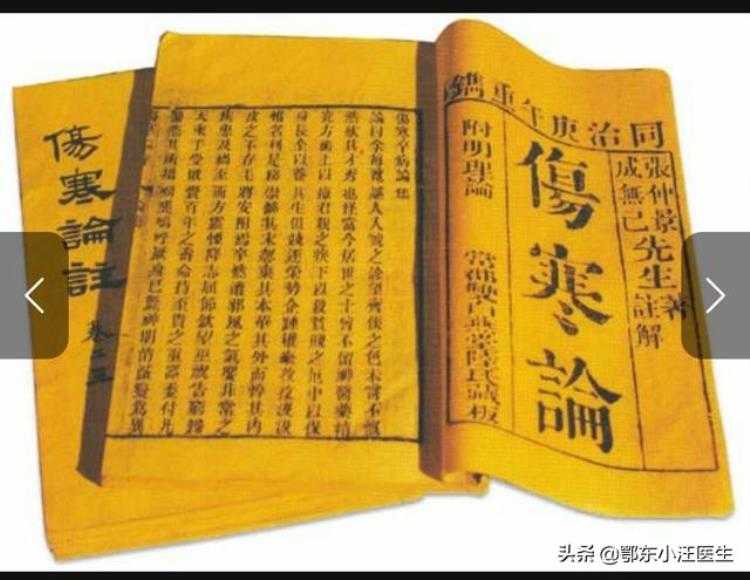 同治庚午重鐫
張仲景
成無己
先生
著
註解
傷寒論
附明理論
當湖雙白燕堂陸氏藏板
傷寒卒病論集
論曰余每覽越人入虢之診望齊侯之色未嘗不慨
然歎其才秀也怪當今居世之士曾不留神醫藥精
究方術上以療君親之疾下以救貧賤之厄中以保
身長全以養其生但競逐榮勢企踵權豪孜孜汲汲
惟名利是務崇飾其末忽棄其本華其外而悴其內
皮之不存毛將安附焉卒然遭邪風之氣嬰非常之
疾患及禍至而方震慄降志屈節欽望巫祝告窮歸
天束手受敗賫百年之壽命持至貴之重器委付凡
醫恣其所措咄嗟嗚呼厥身已斃神明消滅變為異
傷寒論註
頭条 @鄂东小汪医生